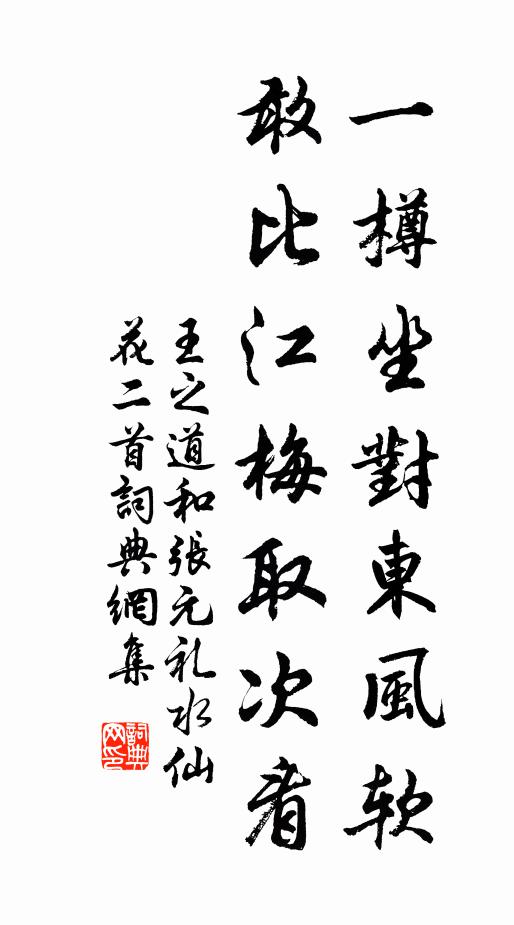 一樽坐對東風軟
敢比江梅取次看
王之道和張元礼水仙
花二首詞典網集
詞典網印